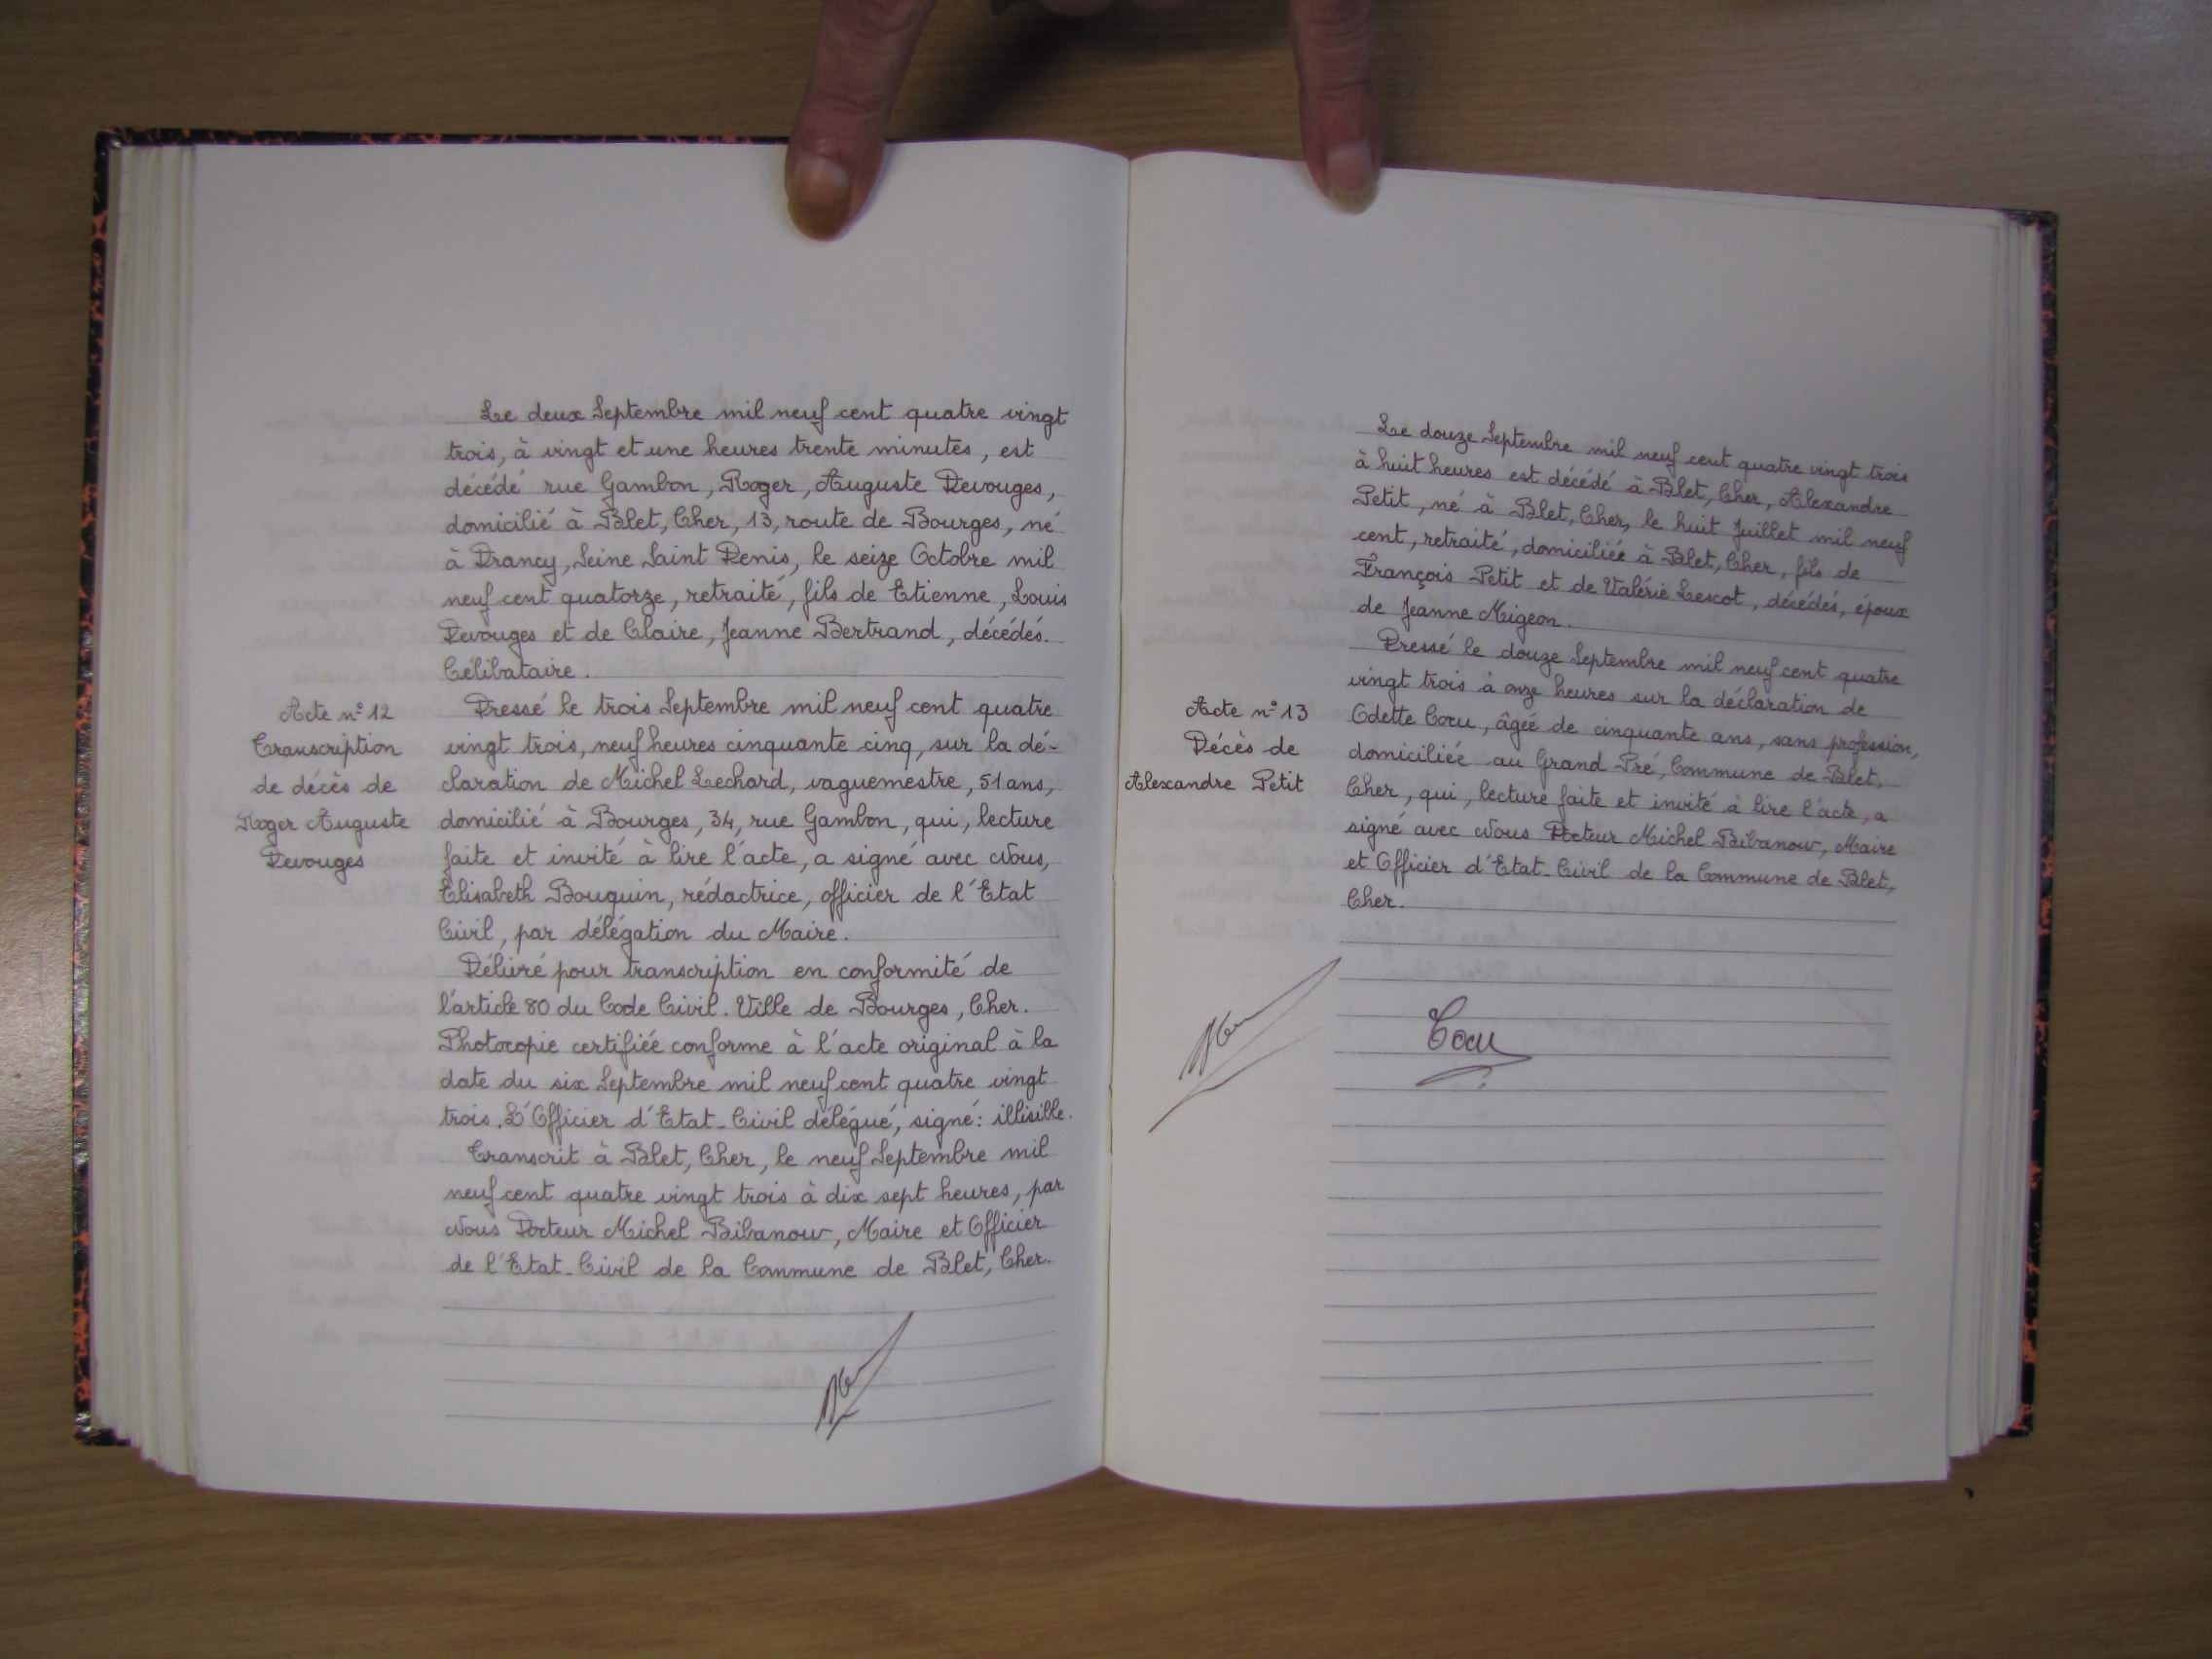 Le deux Septembre mil neuf cent quatre vingt
trois, à vingt et une heures trente minutes, est
décédé rue Gambon, Roger, Auguste Devouges,
domicilié à Blet, Cher, 13, route de Bourges, né
à Drancy, Seine Saint Denis, le seize Octobre mil
neuf cent quatorze, retraité, fils de Etienne, Louis
Devouges et de Claire, Jeanne Bertrand, décédés.
Célibataire.
Acte n° 12
Transcription
de décès de
Roger Auguste
Devouges
Dressé le trois Septembre mil neuf cent quatre
vingt trois, neuf heures cinquante cinq, sur la dé-
claration de Michel Lechard, vaguemestre, 51 ans,
domicilié à Bourges, 34, rue Gambon, qui, lecture
faite et invité à lire l'acte, a signé avec Nous,
Elisabeth Bouquin, rédactrice, officier de l'Etat
Civil, par délégation du Maire.
Délivré pour transcription en conformité de
l'article 80 du Code Civil. Ville de Bourges, Cher.
Photocopie certifiée conforme à l'acte original à la
date du six Septembre mil neuf cent quatre vingt
trois. L'Officier d'Etat-Civil délégué, signé: illisible.
Transcrit à Blet, Cher, le neuf Septembre mil
neuf cent quatre vingt trois à dix sept heures, par
Nous Docteur Michel Bibanow, Maire et Officier
de l'Etat-Civil de la Commune de Blet, Cher.
Le douze Septembre mil neuf cent quatre vingt trois
à huit heures est décédé à Blet, Cher, Alexandre
Petit, né à Blet, Cher, le huit Juillet mil neuf
cent, retraité, domiciliée à Blet, Cher, fils de
François Petit et de Valérie Lescot, décédés, époux
de Jeanne Migeon.
Acte n° 13
Décès de
Alexandre Petit
Dressé le douze Septembre mil neuf cent quatre
vingt trois à onze heures sur la déclaration de
Odette Cocu, âgée de cinquante ans, sans profession,
domiciliée au Grand Pré, Commune de Blet,
Cher, qui, lecture faite et invité à lire l'acte, a
signé avec Nous Docteur Michel Bibanow, Maire
et Officier d'Etat-Civil de la Commune de Blet,
Cher.
Cocu